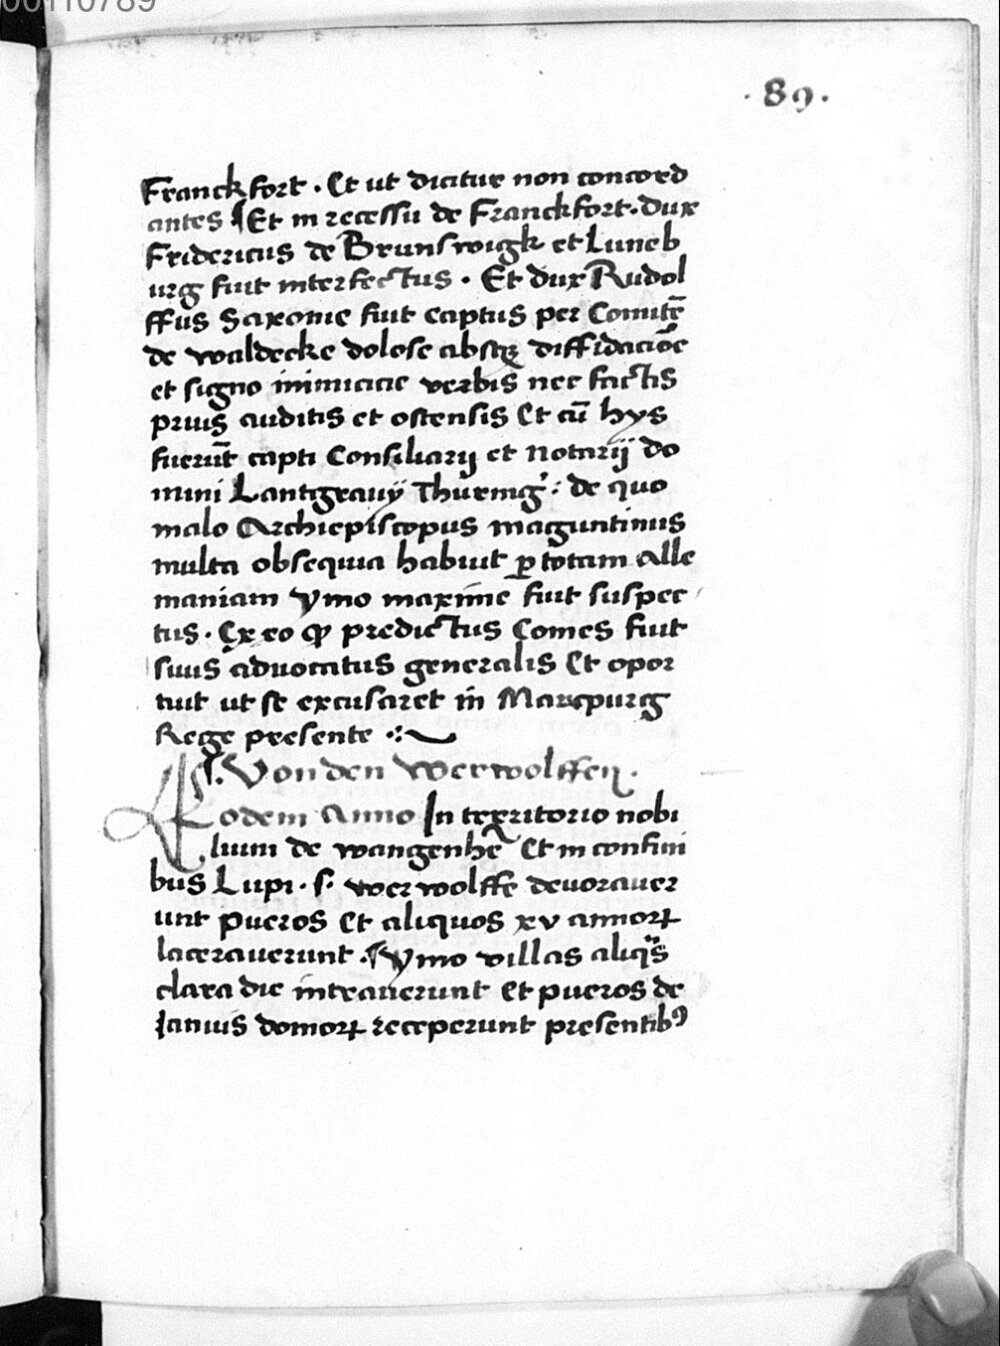 00110789
· 89 ·
Franckfort . Et ut dicitur non concord
antes ¶ Et in recessu de Franckfort . dux
Fridericus de Brunswigk et Luneb
urg fuit interfectus . Et dux Rudol
ffus Saxonie fuit captus per Comitē
de waldecke dolose absqꝫ diffidaciōe
et signo inimicicie verbis nec factis
prius auditis et ostensis Et cū hys
fuerūt capti Consiliarij et Notarij do
mini Lantgravij Thuring' : de quo
malo Archiepiscopus maguntinus
multa obsequia habuit ꝑ totam Alle
maniam ymo maxime fuit suspec
tus . Ex eo ꝙ predictus Comes fuit
suus advocatus generalis Et opor
tuit ut se excusaret in Marcpurg
Rege presente
¶ . Von den Werwolffen .
Eodem Anno In territorio nobi
lium de wangenhē Et in confini
bus Lupi . s . werwolffe devoraver
unt pueros Et aliquos xv annoꝝ
laceraverunt . ¶ ymo villas aliqͣs
clara die intraverunt Et pueros de
Ianuis domoꝝ receperunt presentibꝰ